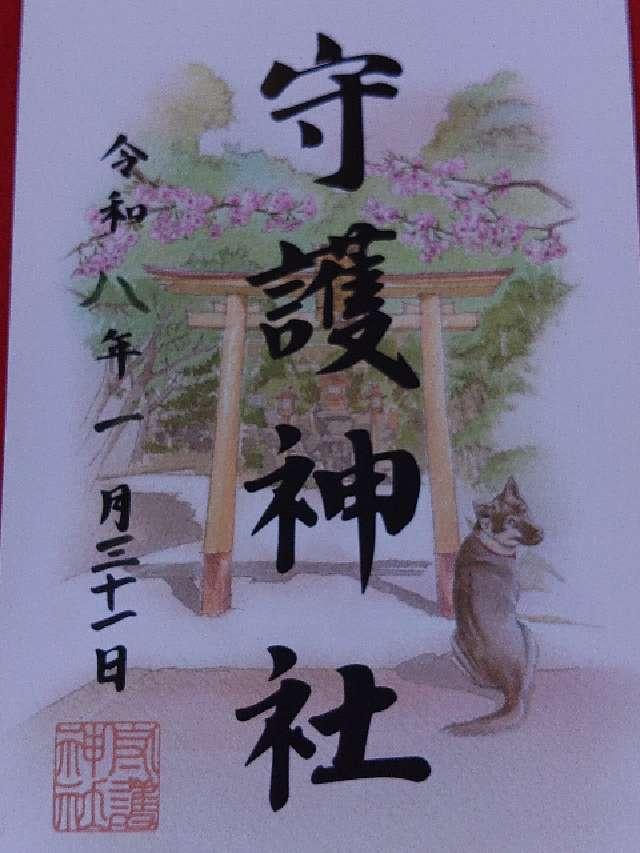 守護神社
令和八年一月三十一日
守護神社